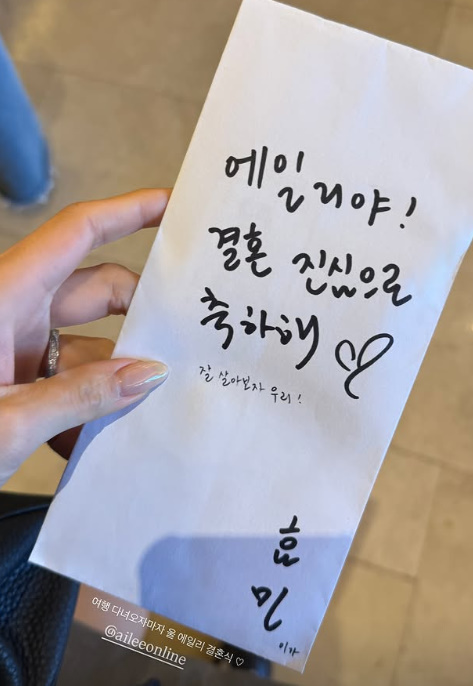 에일리야!
결혼 진심으로
축하해 ♡
잘 살아보자 우리!
효
민
이가
여행 다녀오자마자 울 에일리 결혼식 ♡
@aileeonline